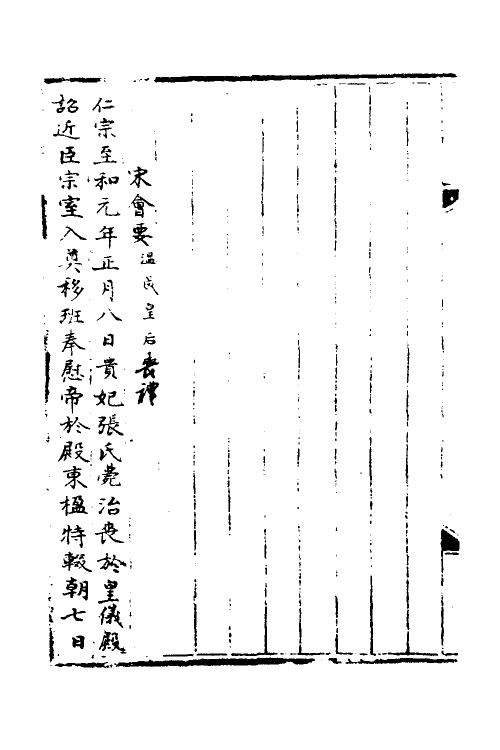 宋會要温成皇后喪禮
仁宗至和元年正月八日貴妃張氏薨治喪於皇儀殿
詔近臣宗室入奠移班奉慰帝於殿東楹特輟朝七日